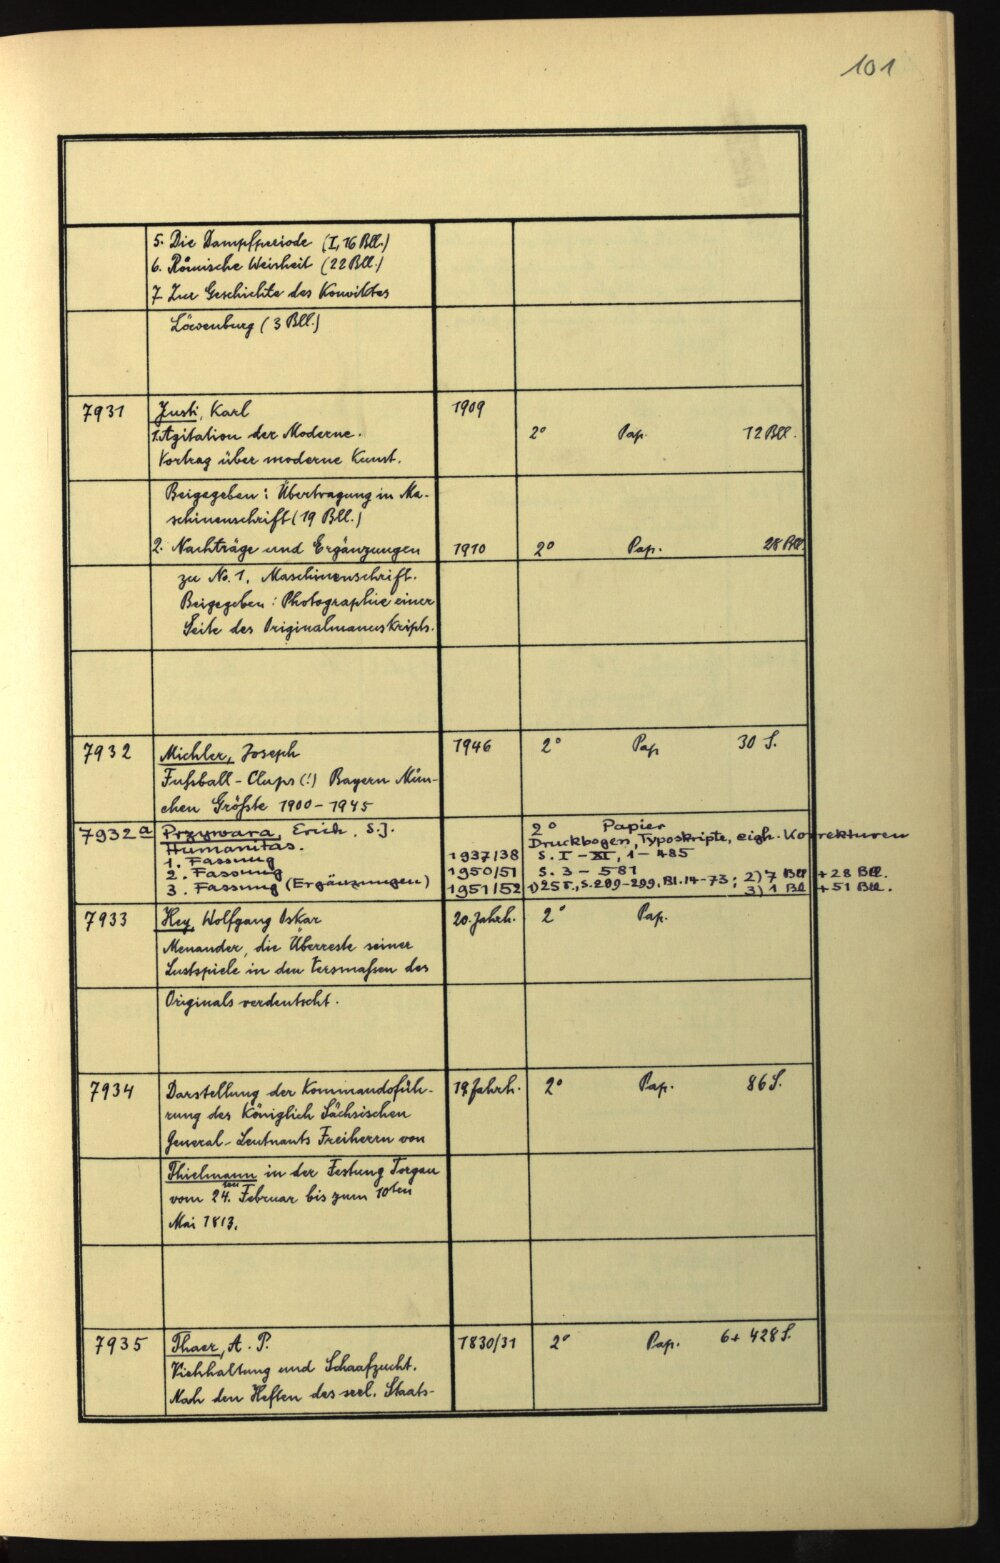 101
5. Die Dampfperiode (I, 16 Bll.)
6. Römische Weisheit (22 Bll.)
7. Zur Geschichte des Konviktes
Löwenburg (3 Bll.)
7931 Justi, Karl 1909
1. Agitation der Moderne. 2° Pap. 12 Bll.
Vortrag über moderne Kunst.
Beigegeben: Übertragung in Ma-
schinenschrift (19 Bll.)
2. Nachträge und Ergänzungen 1910 2° Pap. 28 Bll.
zu No. 1. Maschinenschrift.
Beigegeben: Photographie einer
Seite des Originalmanuskripts.
7932 Michler, Joseph 1946 2° Pap 30 S.
Fußball-Clups (!) Bayern Mün-
chen Größte 1900-1945
7932a Przywara, Erich, S.J. 2° Papier
Humanitas. Druckbogen, Typoskripte, eigh. Korrekturen
1. Fassung 1937/38 S. I-XI, 1-485
2. Fassung 1950/51 S. 3-581
3. Fassung (Ergänzungen) 1951/52 1) 25 S., S. 289-299, Bl. 14-73; 2) 7 Bll + 28 Bll.
3) 1 Bl + 51 Bll.
7933 Hey, Wolfgang Oskar 20. Jahrh. 2° Pap.
Menander, die Überreste seiner
Lustspiele in den Versmaßen des
Originals verdeutscht.
7934 Darstellung der Kommandofüh- 19. Jahrh. 2° Pap. 86 S.
rung des Königlich Sächsischen
General-Leutnants Freiherrn von
Thielmann in der Festung Torgau
vom 24.ten Februar bis zum 10ten
Mai 1813.
7935 Thaer, A. P. 1830/31 2° Pap. 6 + 428 S.
Viehhaltung und Schaafzucht.
Nach den Heften des seel. Staats-